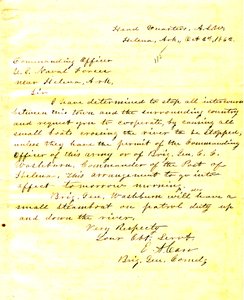 Head Quarters, A.S.W.
Helena, Ark, Oct 6th, 1862.
Commanding Officer
U.S. Naval Forces
near Helena, Ark,
Sir
I have determined to stop all intercourse
between this town and the surrounding country
and request you to cooperate by causing all
small boats crossing the river to be stopped,
unless they have the permit of the Commanding
Officer of this army or of Brig. Gen. C. C.
Washburn, Commander of the Post of
Helena. This arrangement to go into
effect tomorrow morning.
Brig. Gen. Washburn will have a
small steamboat on patrol duty up
and down the river.
Very Respectfy
Your Obt. Servt.
E. A. Carr
Brig. Gen. Comdg.